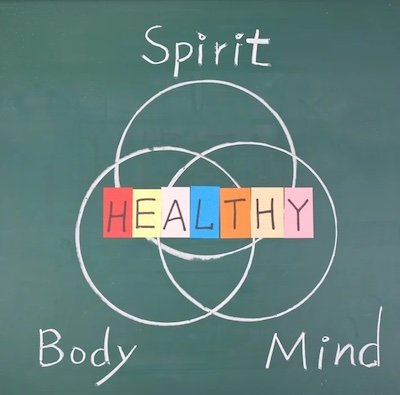 Spirit
HEALTHY
Body
Mind